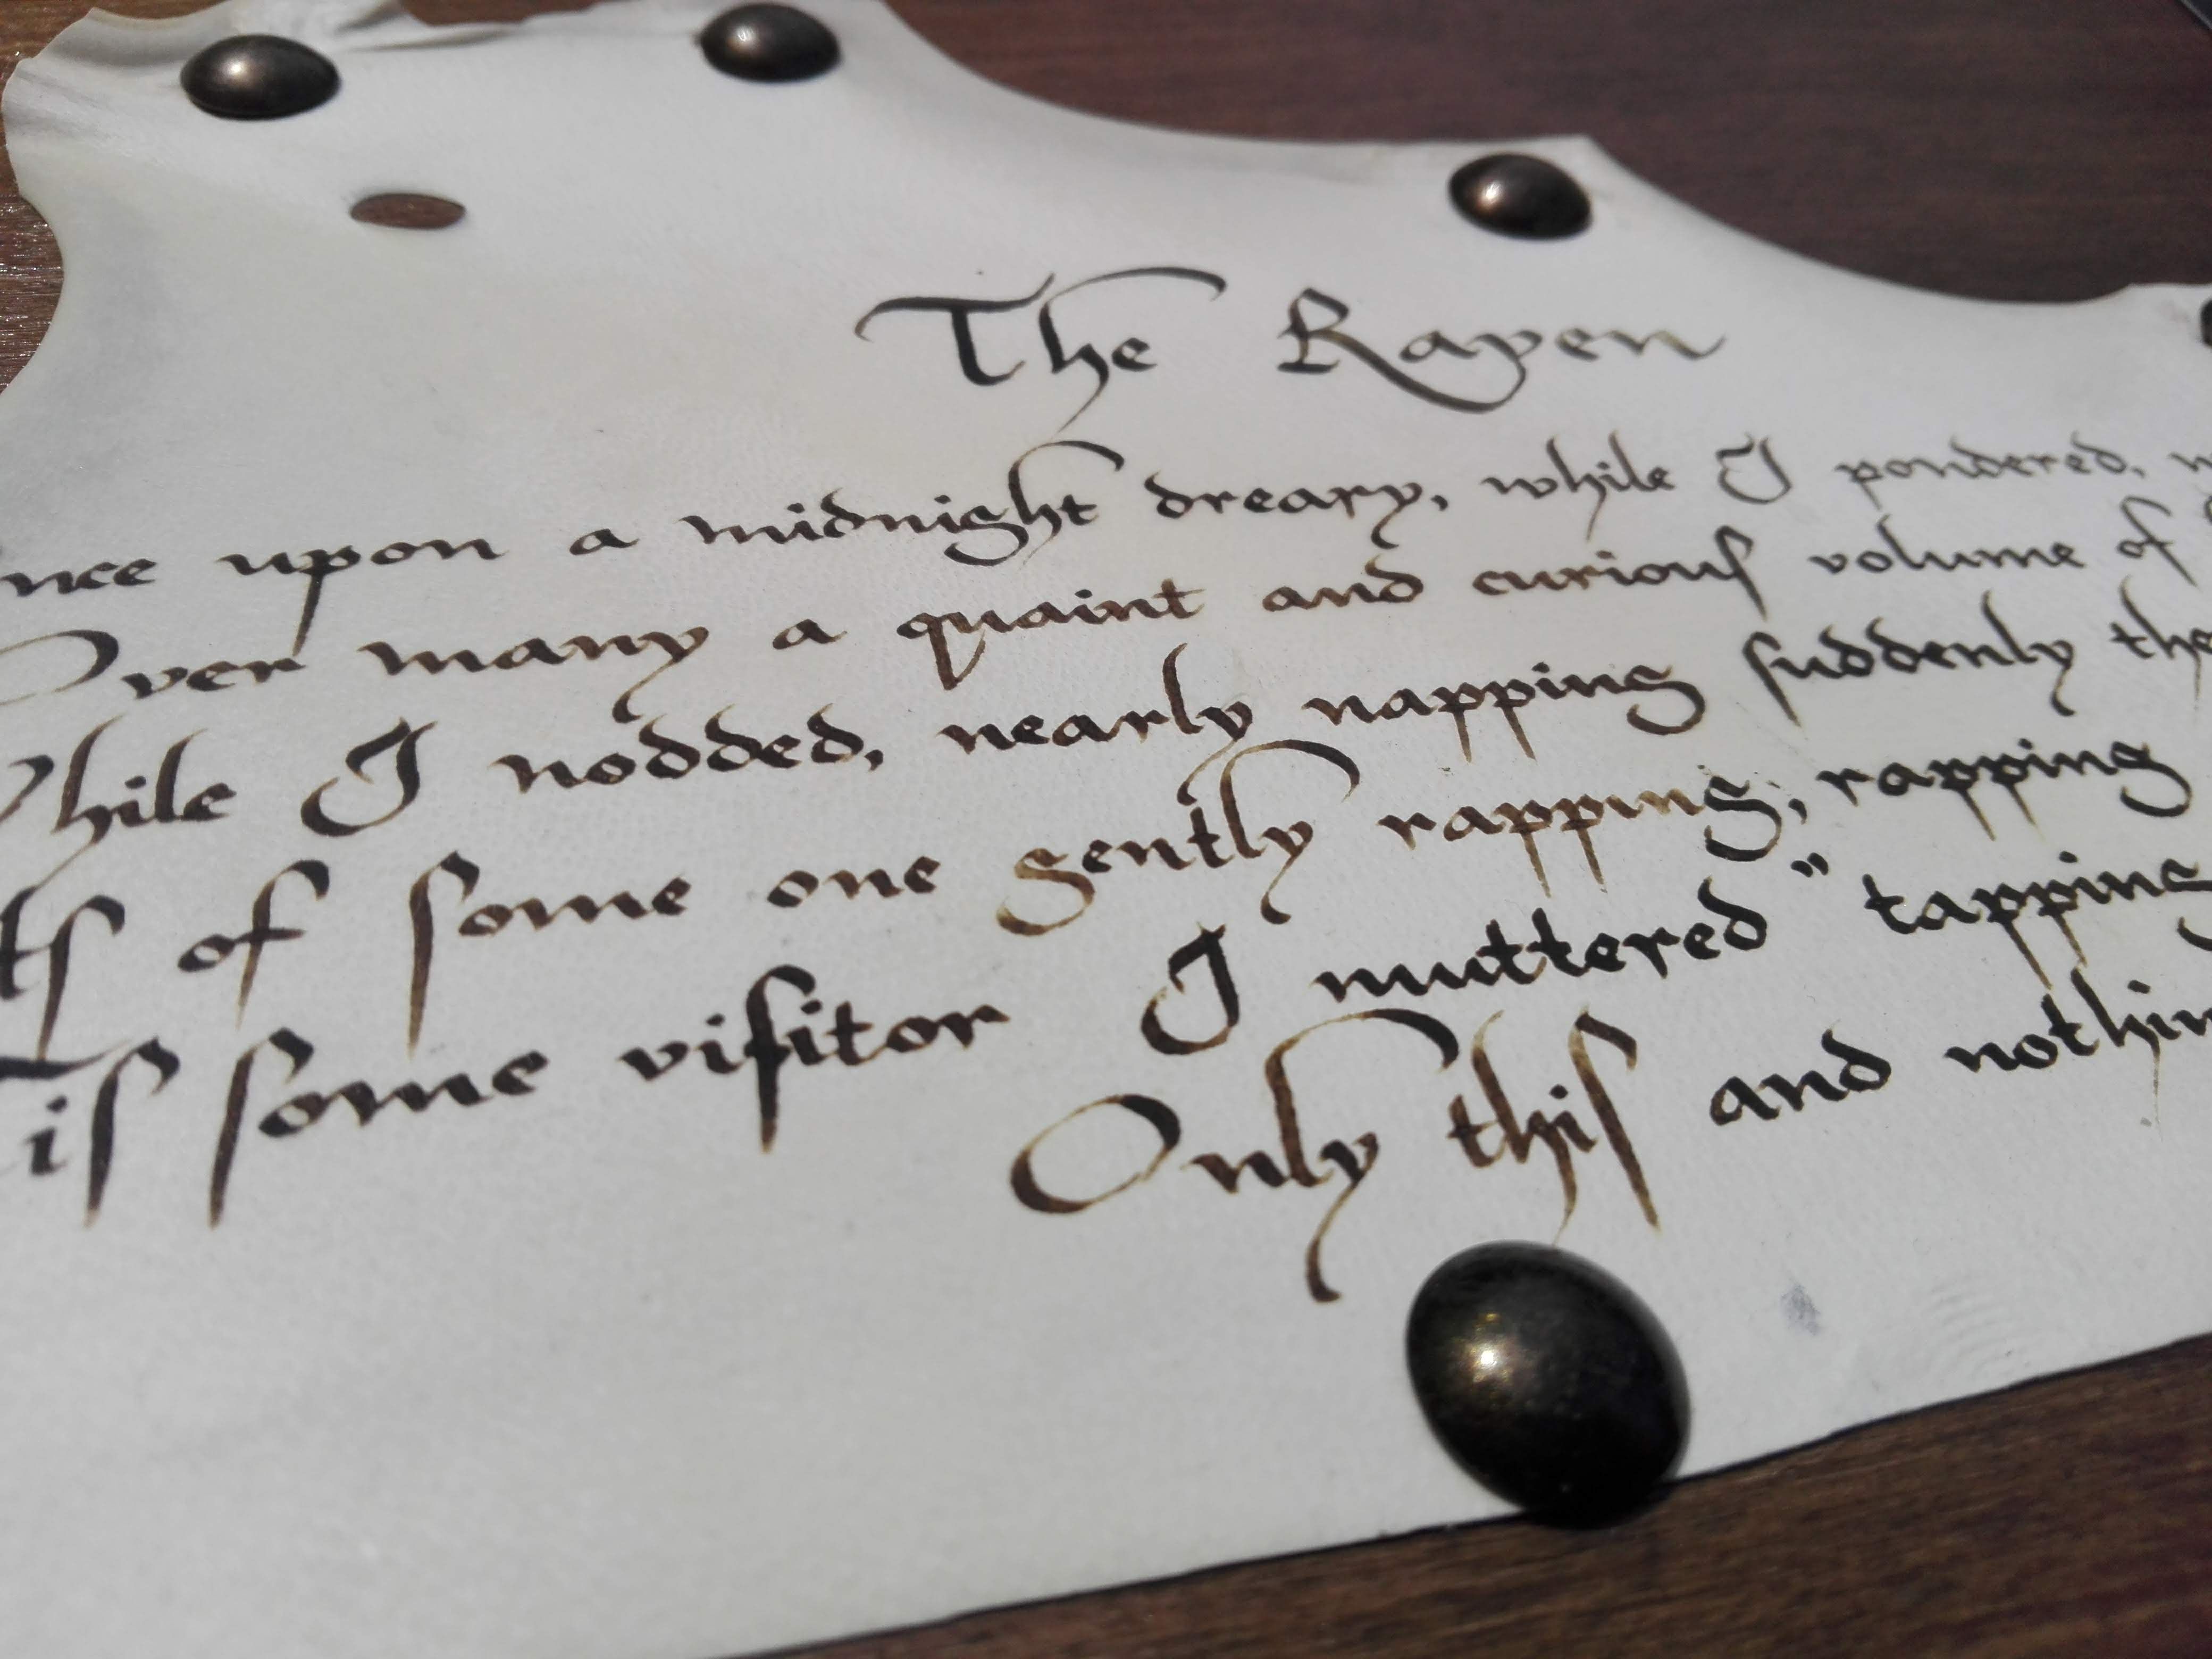 The Raven
nce upon a midnight dreary, while I pondered, w
Over many a quaint and curiouſ volume of
While I nodded, nearly napping ſuddenly the
tſ of ſome one gently rapping, rapping
Tiſ ſome viſitor I muttered" tapping
Only thiſ and nothin